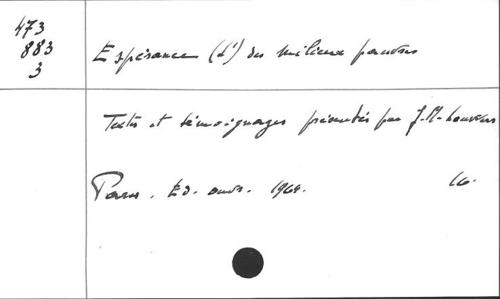 473
883
3
Espérance (L') des milieux pauvres
Textes et témoignages présentés par J.-M.
Paris. Ed. ouvr. 1964. 16.